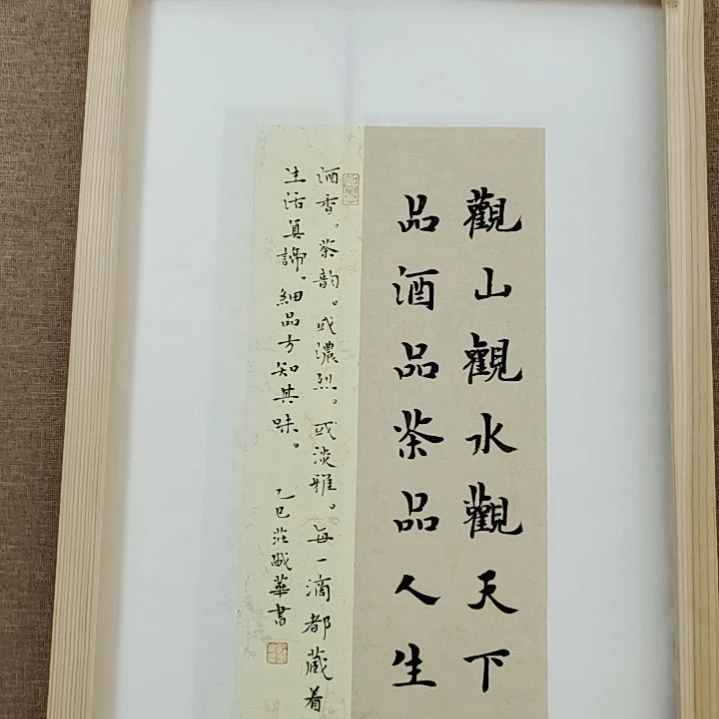 觀山觀水觀天下
品酒品茶品人生
酒香。茶韵。或濃烈。或淡雅。每一滴都藏着
生活真諦。細品方知其味。
乙巳莊
華書